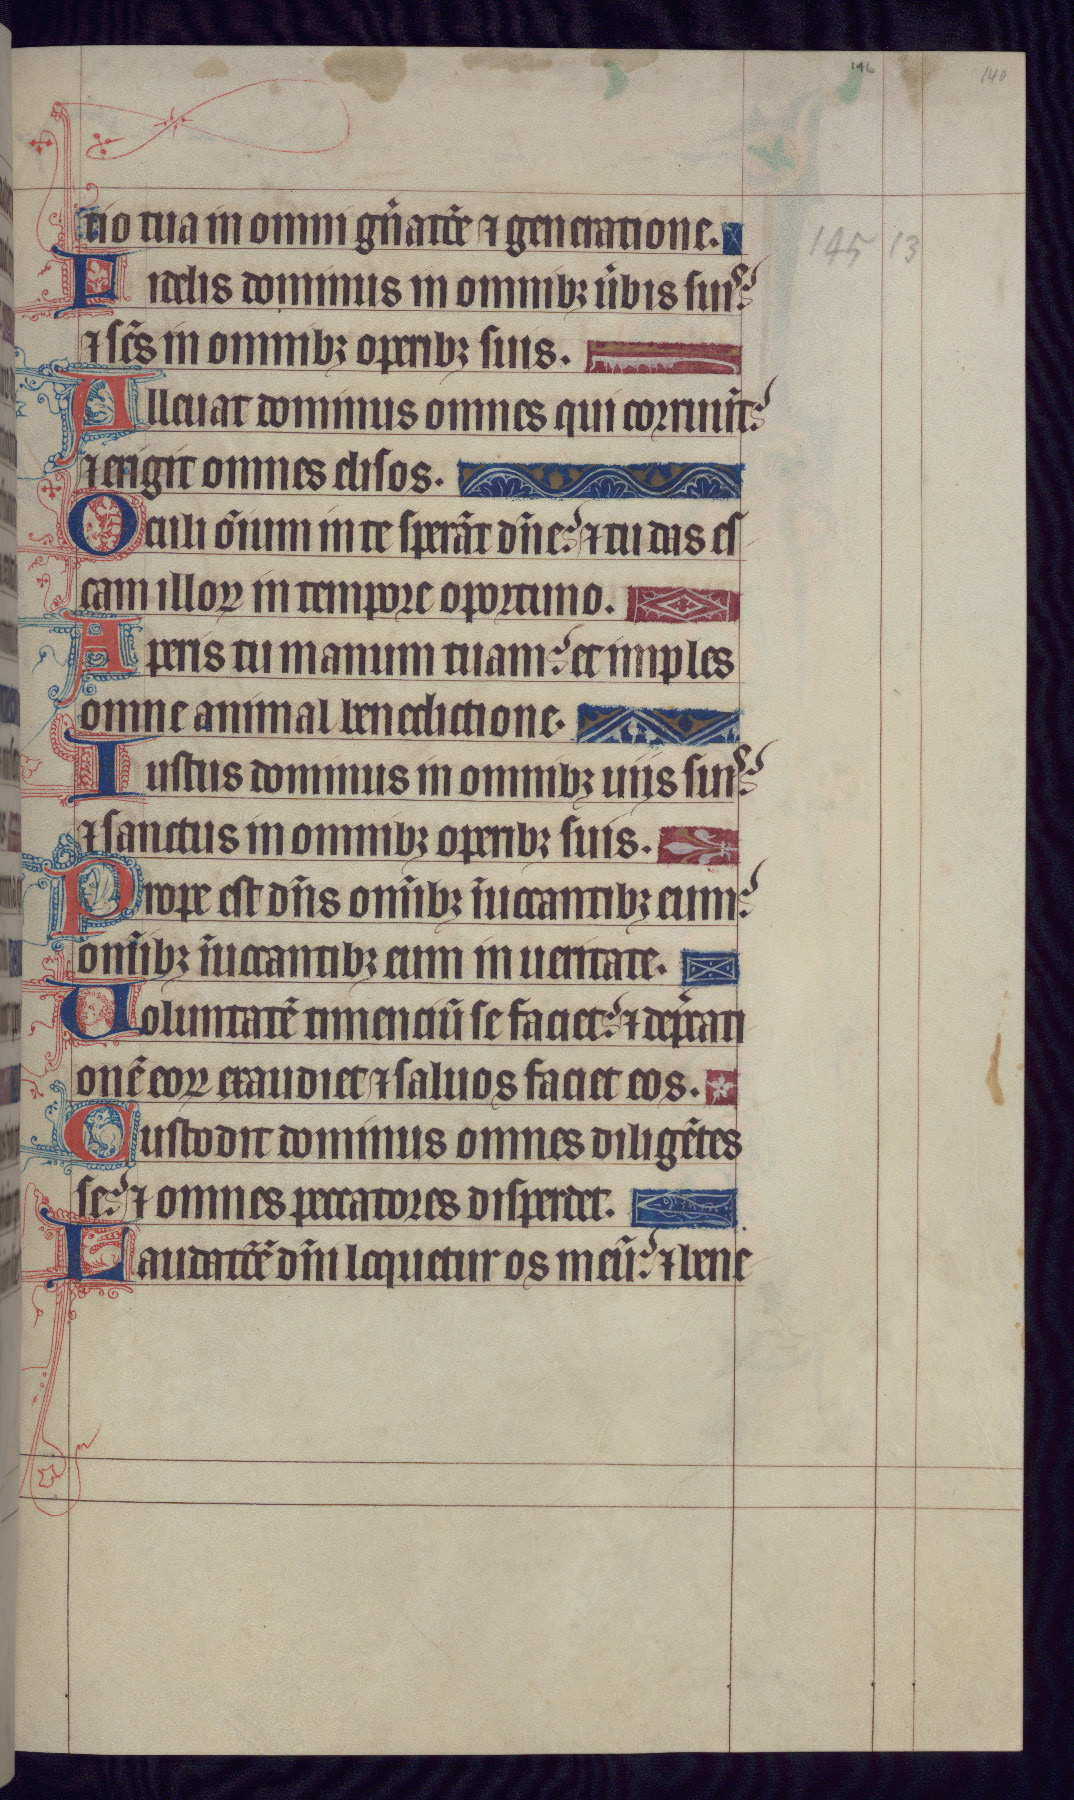 146
140
145 13
tio tua in omni gñatõe ⁊ generatione.
Fidelis dominus in omnibꝫ ũbis suis
⁊ scs̃ in omnibꝫ operibꝫ suis.
Alleuat dominus omnes qui corruũt
⁊ erigit omnes elisos.
Oculi õium in te sperãt dñe ⁊ tu das es
cam illoꝝ in tempore oportuno.
Aperis tu manum tuam et imples
omne animal benedictione.
Iustus dominus in omnibꝫ uijs suis
⁊ sanctus in omnibꝫ operibꝫ suis.
Prope est dñs omĩbꝫ ĩuocantibꝫ eum
omĩbꝫ ĩuocantibꝫ eum in ueritate.
Uoluntatẽ timenciũ se faciet ⁊ dep̃cati
onẽ eoꝝ exaudiet ⁊ saluos faciet eos.
Custodit dominus omnes diligẽtes
se ⁊ omnes peccatores disperdet.
Laudatõẽ dñi loquetur os meũ ⁊ bene